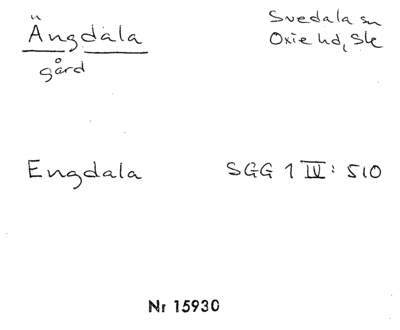 Ängdala Svedala sn
gård Oxie hd, Sk
Engdala SGG 1 IV: 510
Nr 15930